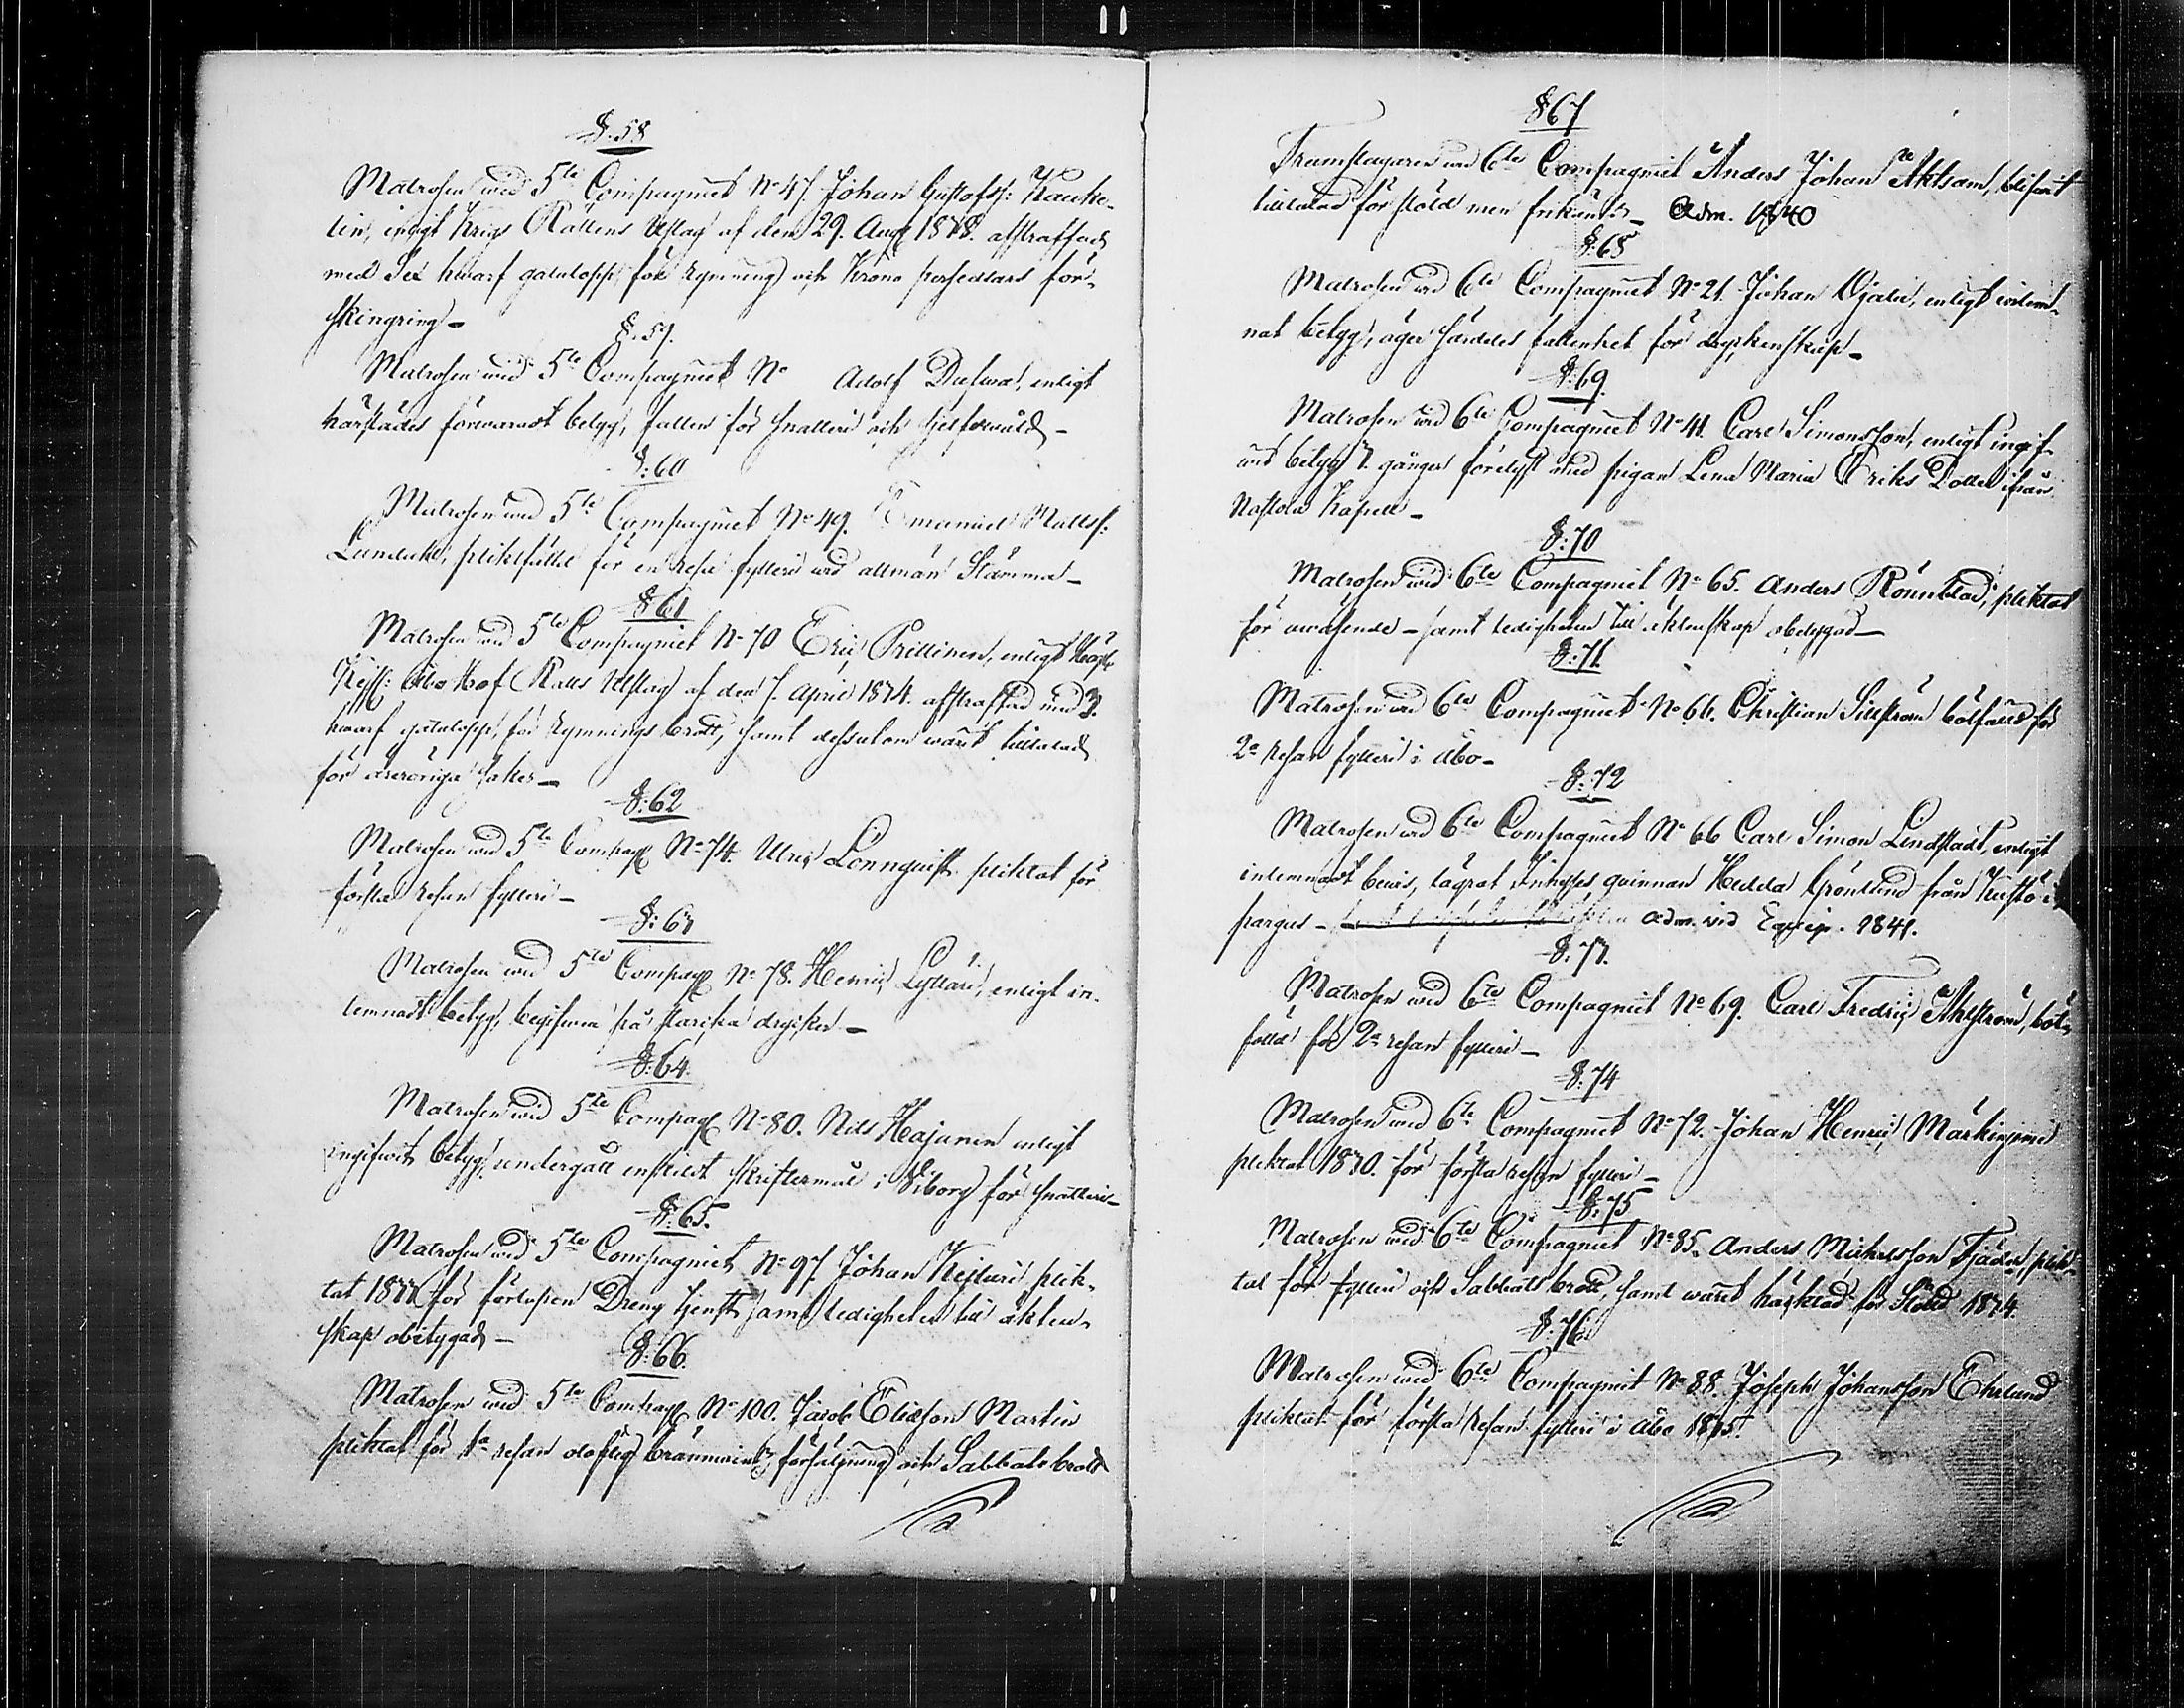 §. 58
Matrosen wid 5te Compagniet No 47. Johan Gustofss:
lin, enligt Krigs Rättens Utslag af den 29. Aug 1838. afstraffad
med Sex hwarf gatulopp för rymning och Krono persedlars för-
skingring –
§. 59.
Matrosen wid 5te Compagniet No Adolf enligt
härstädes förwaradt betyg, fallen för snatteri och sjelfswåld –
§: 60
Matrosen wid 5te Compagniet No 49. Emanuel Mattss:
pliktfälld för en resa fylleri wid allmän Stämma –
§ 61
Matrosen wid 5te Compagniet No 70 Eric Prillinen, enligt
Kejs: Åbo Hof Rätts Utslag af den 7. April 1834. afstraffad med 3.
hwarf gatulopp för rymnings brott, samt dessutom warit tilltalad
för saker –
§: 62
Matrosen wid 5te Compag No 74. Ulric Lönnquist pliktat för
första resan fylleri –
§: 63
Matrosen wid 5te Compag No 78. Henric enligt in-
lemnadt betyg, begifwen på starka drycker –
§: 64.
Matrosen wid 5te Compag No 80. Nils Hajanen enligt
ingifwit betyg, undergått enskildt skriftermål i Wiborg för snatteri –
§: 65.
Matrosen wid 5te Compagniet No 97. Johan plik-
tat för förlupen Dreng tjenst samt ledigheten till äkten-
skap obetygad –
§: 66.
Matrosen wid 5te Compag No 100. Jacob Eliasson Martin
pliktat för 1a resan olaflig bränwins försäljning och Sabbats brott
§ 67
Trumslagaren wid 6te Compagniet Anders Johan blifwit
tilltalad för stöld men frikänd – Adm. 1840
§: 68
Matrosen wid 6te Compagniet No 21. Johan Ojala, enligt inlem-
nat betyg, äger särdeles fallenhet för dryckenskap –
§: 69.
Matrosen wid 6te Compagniet No 41. Carl Simonsson, enligt ingif-
wit betyg gånger förelyst med pigan Lena Maria Eriks Dotter ifrån
Nastola Kapell –
§: 70
Matrosen wid 6te Compagniet No 65. Anders Rönnblad, pliktat
för owäsende – samt ledigheten till äktenskap obetygad –
§: 71.
Matrosen wid 6te Compagniet No 66. Christian Sillström bötfälld för
2a resan fylleri i Åbo –
§: 72
Matrosen wid 6te Compagniet No 66 Carl Simon Lindstädt, enligt
inlemnadt bewis, lägrat Inhyses qwinnan Hedda Grönlund från Kustö i
pargas – adm. wid Equip. 1841.
§: 73.
Matrosen wid 6te Compagniet No 69. Carl Fredric Åhlström, böt-
fälld för 2a resan fylleri –
§: 74
Matrosen wid 6te Compagniet No 72. Johan Henric
pliktat 1830. för första resan fylleri –
§: 75
Matrosen wid 6te Compagniet No 85. Anders Michelsson Fjäder, plik-
tat för fylleri och Sabbats brott, samt warit häcktad för Stöld 1834.
§: 76.
Matrosen wid 6te Compagniet No 88. Joseph Johansson Ehrlund
pliktat för första resan fylleri i Åbo 1835.